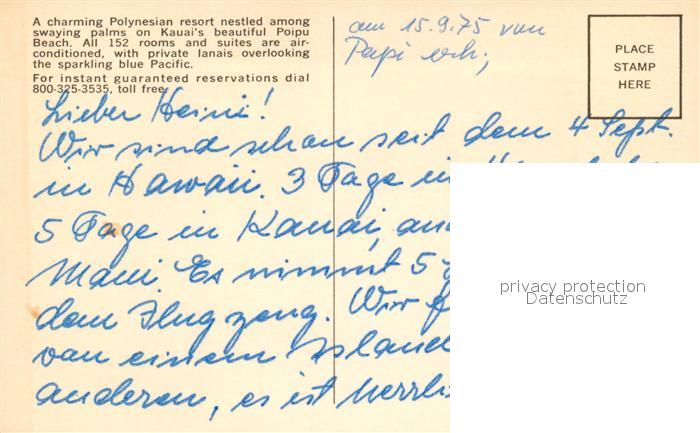 A charming Polynesian resort nestled among
swaying palms on Kauai's beautiful Poipu
Beach. All 152 rooms and suites are air-
conditioned, with private lanais overlooking
the sparkling blue Pacific.
For instant guaranteed reservations dial
800-325-3535, toll free.
am 15.9.75 von
Papi erh;
PLACE
STAMP
HERE
Lieber Heini!
Wir sind schon seit dem 4 Sept.
in Hawaii. 3 Tage in
5 Tage in Kauai, and
Maui. Es nimmt 5
dem Flugzeug. Wir
von einem Island
anderen, es ist herrli
privacy protection
Datenschutz